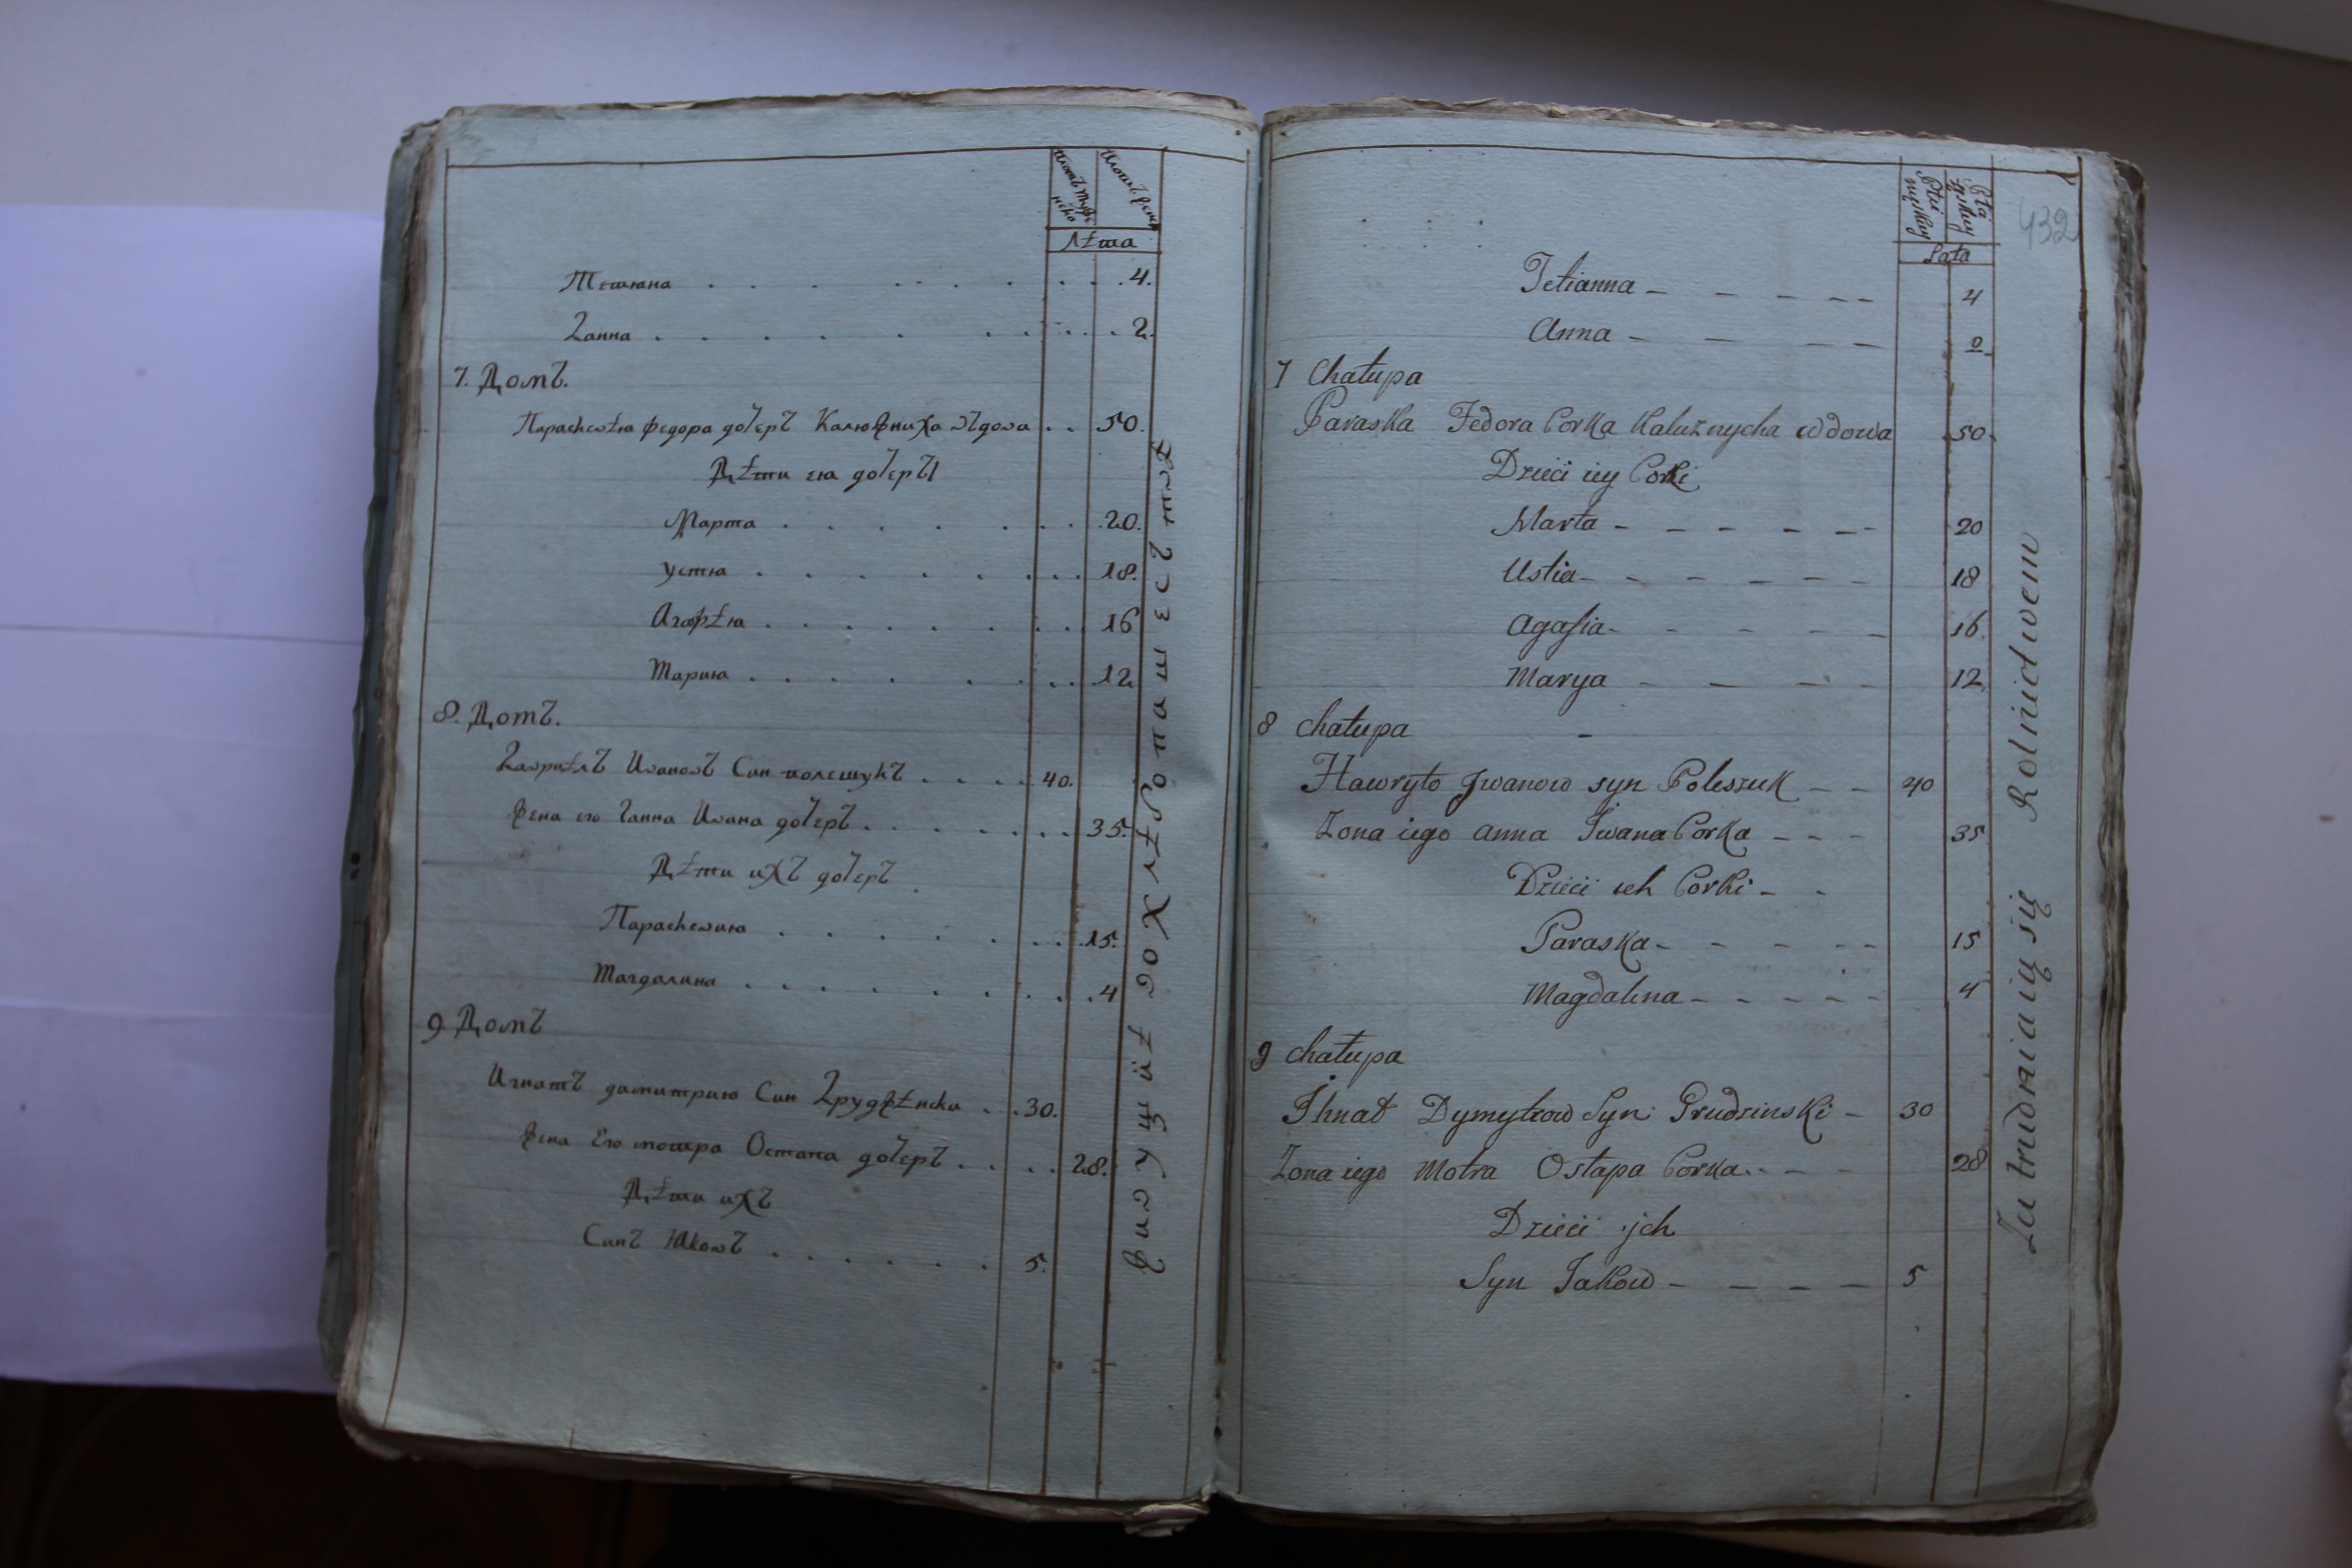 лѣта
Тетяна . . . . . . . . 4.
Ганна . . . . . . . . 2.
7. Домъ.
Параскевѣя федора дочеръ Калюжниха въдова . . 50.
Дѣти ея дочеръı
Марта . . . . . . . 20.
Устя . . . . . . . . 18.
Агафѣя . . . . . . . . 16
Мария . . . . . . . 12
8. Домъ.
Гавриѣлъ Ивановъ Син полешукъ . . . . 40.
Жена его Ганна Ивана дочеръ . . . . . . . 35.
Дѣти ихъ дочеръ .
Параскевия . . . . . . . 15.
Магдалина . . . . . . . . . 4
9 Домъ
Игнатъ димитрию Син Грудзѣнски . . 30.
Жена Его мотра Остапа дочеръ . . . . 28.
Дѣти ихъ
Синъ Яковъ . . . . . . 5.
432
Płci męskiey
Płci żeńskiey
Lata
Tetianna – – – – – 4
Anna – – – – 2
7 Chałupa
Paraska Fedora Corka Kalużnycha wdowa 50
Dzieci iey Corki
Marta – – – – – – 20
Ustia – – – – – – 18
Agafia – – – – – 16
Marya – – – – 12
8 Chałupa –
Hawryło Jwanow syn Poleszuk – – 40
Zona iego Anna Iwana Corka – – – 35
Dzieci ich Corki – -
Paraska – – – – – 15
Magdalena – – – – – 4
9 Chałupa
Ihnat Dymytrow Syn Grudzinski – 30
Zona iego Motra Ostapa Corka – – – 28
Dzieci jch
Syn Jakow – – – – 5
Zu trudniaią się Rolnictwem